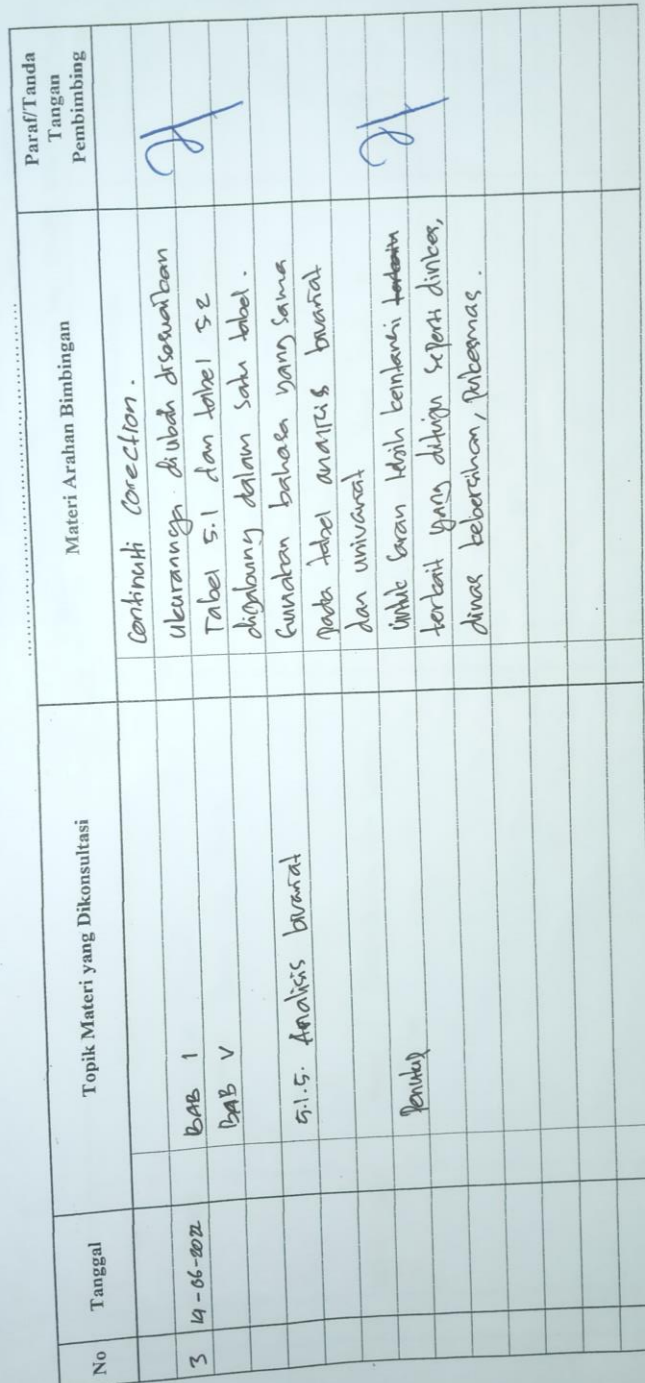 No Tanggal Topik Materi yang Dikonsultasi Materi Arahan Bimbingan Paraf/Tanda
Tangan
Pembimbing
Continuiti Corection.
3 14-06-2022 BAB 1 ukurannya diubah disesuaikan
BAB V Tabel 5.1 dan tabel 5.2
digabung dalam satu tabel.
5.1.5. Analisis bivariat Gunakan bahasa yang sama
pada tabel analisis bivariat
dan univariat
Penutup Untuk saran lebih keintansi terkait
terkait yang dituju seperti dinkes,
dinas kebersihan, puskesmas.